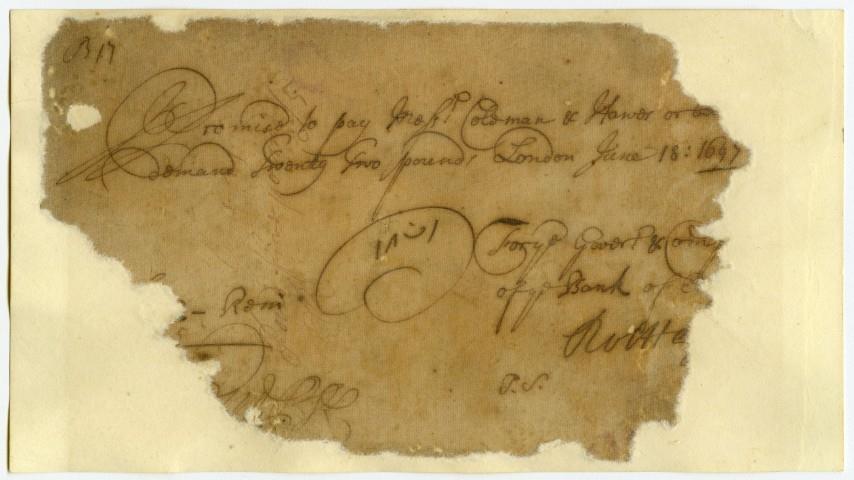 B 17
I Promise to pay Mess.rs Coldman & Hawes or
demand Twenty Two pounds London June 18: 1697
For ye Govert & Comp
of ye Bank of E
Rem
Rob Ha
P.S.